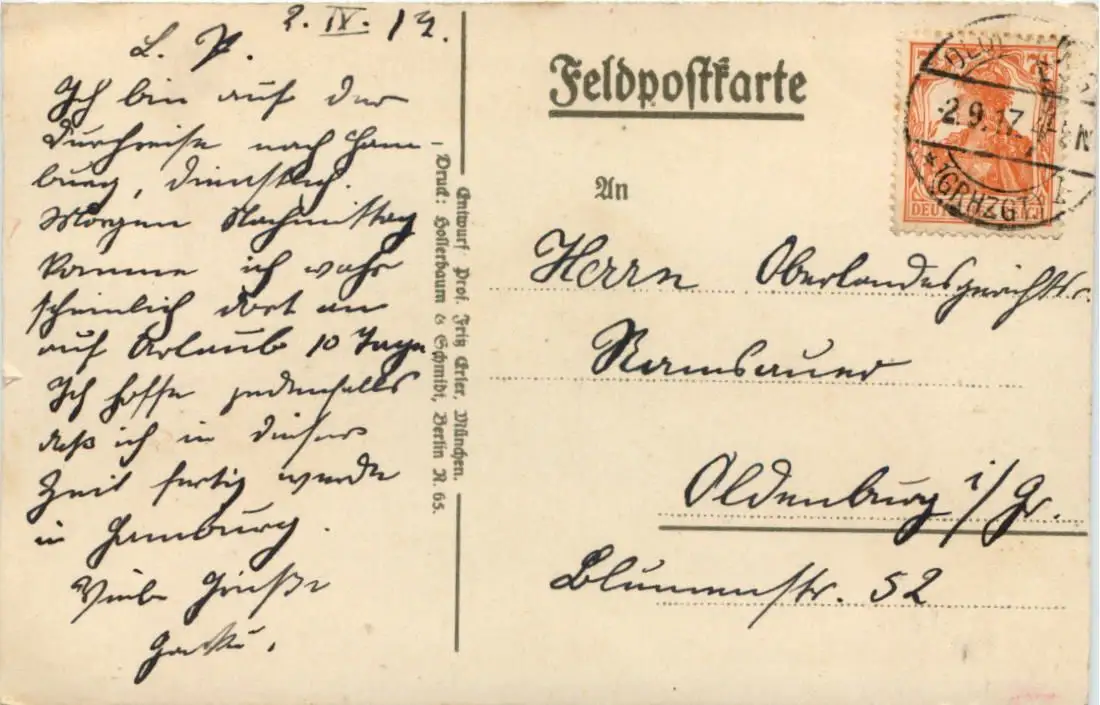 2. IV. 17.
L. P.
Ich bin auf der
Durchreise nach Ham-
burg, dienstlich.
Morgen Nachmittag
komme ich wahr
scheinlich dort an
auf Urlaub 10 Tage
Ich hoffe jedenfalls
daß ich in dieser
Zeit fertig werde
in Hamburg.
Viele Grüße
Entwurf Prof. Fritz Erler, München.
Druck: Hollerbaum & Schmidt, Berlin N. 65.
Feldpostkarte
An
Herrn Oberlandesgerichtsr.
Ramsauer
Oldenburg i/Gr.
Blumenstr. 52
-2.9.17
* (GRHZGT.)